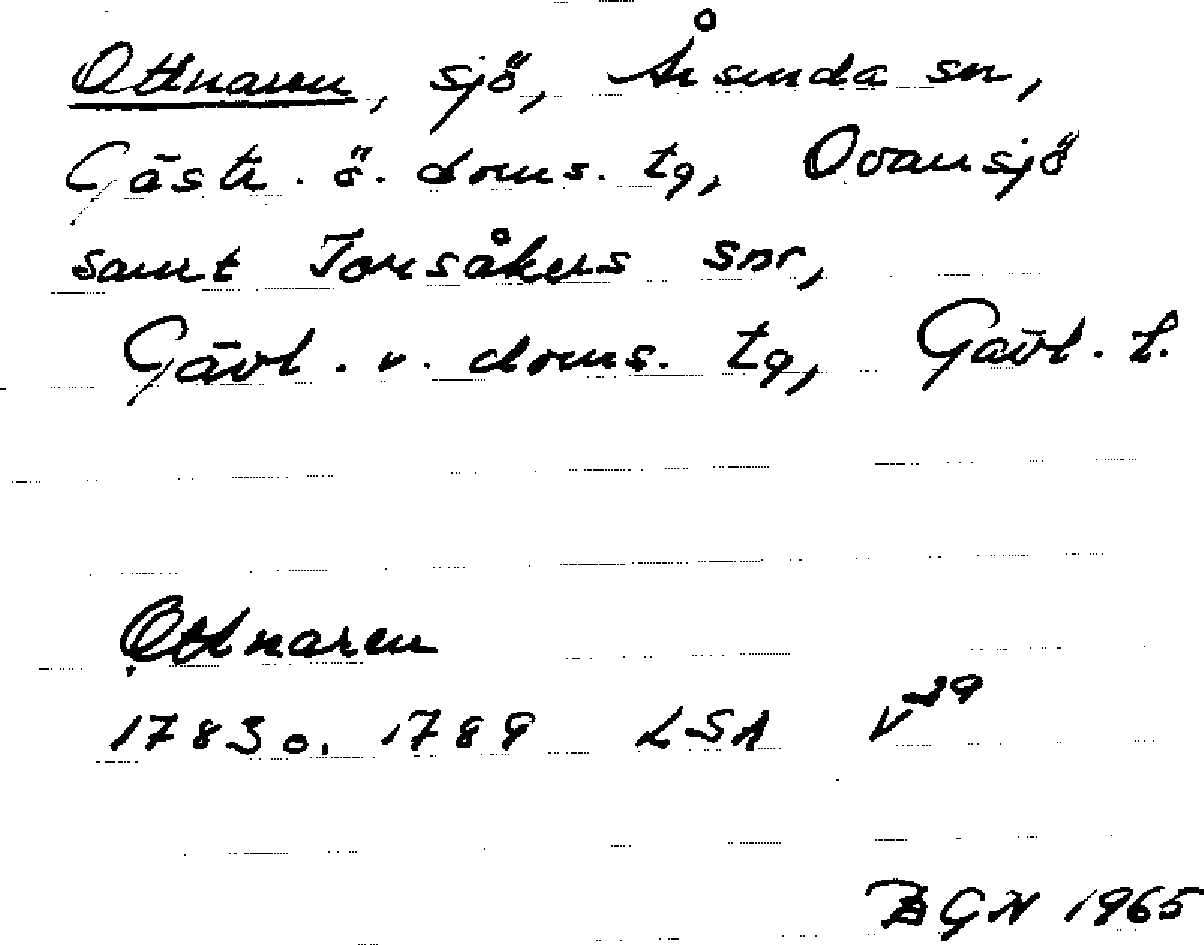 Ottnaren, sjö, Årsunda sn,
Gästr. ö. doms. tg, Ovansjö
samt Torsåkers snr,
Gävl. v. doms. tg, Gävl. l.
Ottnaren
1783 o. 1789 LSA V29
BGN 1965